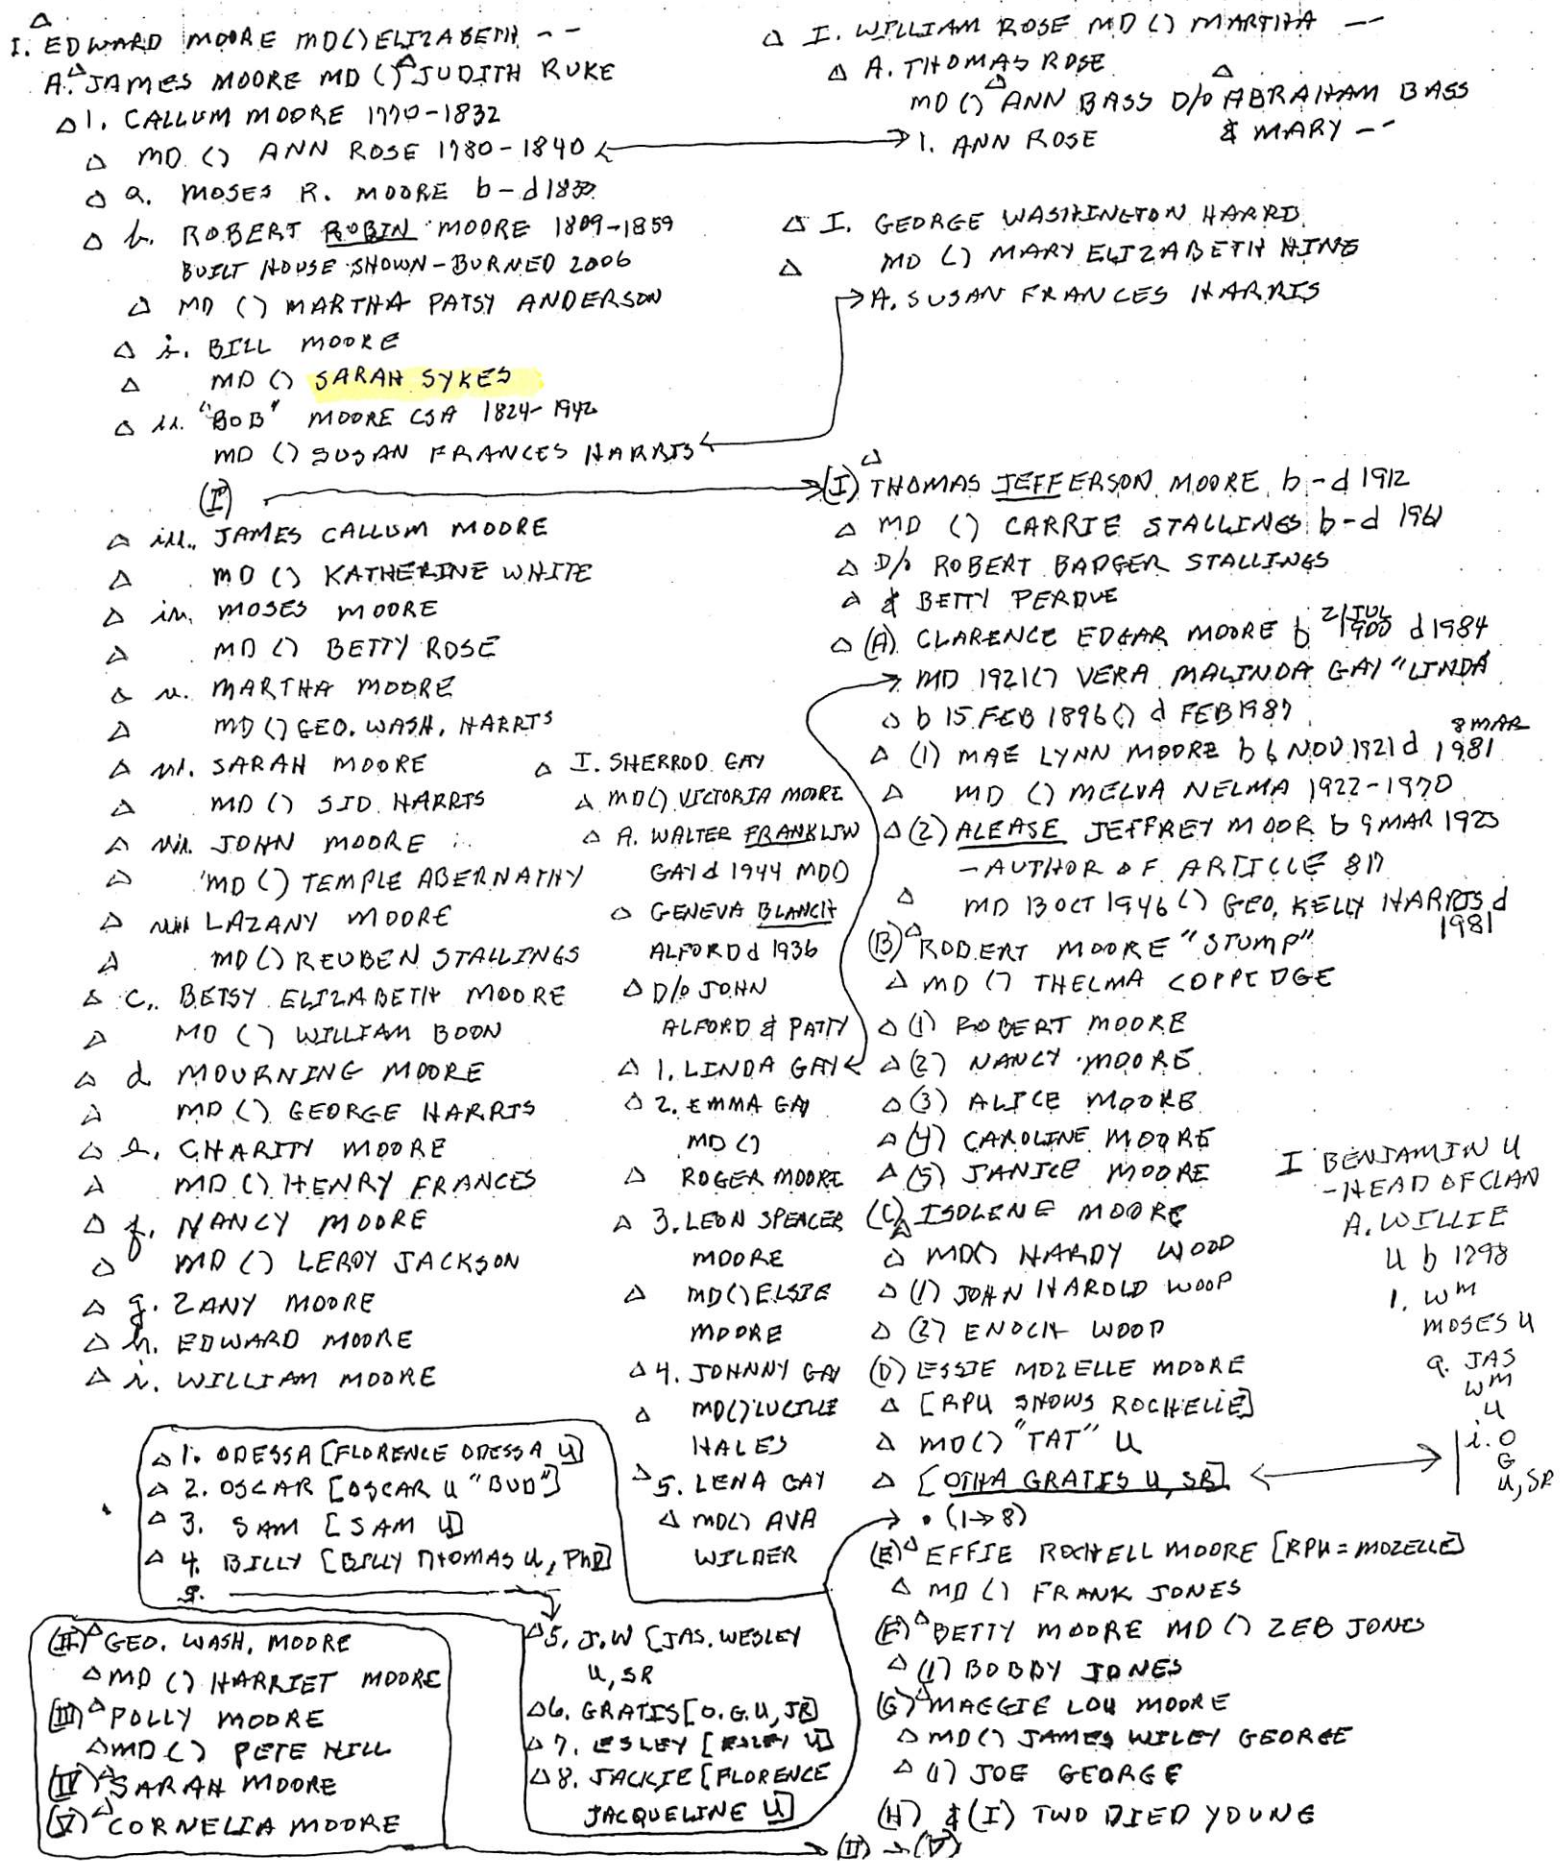 I. EDWARD MOORE MD() ELIZABETH --
A. JAMES MOORE MD () JUDITH RUKE
1. CALLUM MOORE 1770-1832
MD. () ANN ROSE 1780-1840
a. MOSES R. MOORE b-d 1830
b. ROBERT ROBIN MOORE 1809-1859
BUILT HOUSE SHOWN-BURNED 2006
MD () MARTHA PATSY ANDERSON
i. BILL MOORE
MD () SARAH SYKES
ii. "BOB" MOORE CSA 1824-1942
MD () SUSAN FRANCES HARRIS
(I)
iii. JAMES CALLUM MOORE
MD () KATHERINE WHITE
iv. MOSES MOORE
MD () BETTY ROSE
v. MARTHA MOORE
MD () GEO. WASH. HARRIS
vi. SARAH MOORE
MD () SID HARRIS
vii. JOHN MOORE
MD () TEMPLE ABERNATHY
viii LAZANY MOORE
MD () REUBEN STALLINGS
c. BETSY ELIZABETH MOORE
MD () WILLIAM BOON
d. MOURNING MOORE
MD () GEORGE HARRIS
e. CHARITY MOORE
MD () HENRY FRANCES
f. NANCY MOORE
MD () LEROY JACKSON
g. ZANY MOORE
h. EDWARD MOORE
i. WILLIAM MOORE
1. ODESSA [FLORENCE ODESSA U]
2. OSCAR [OSCAR U "BUD"]
3. SAM [SAM U]
4. BILLY [BILLY THOMAS U, PhD]
5.
(II) GEO. WASH. MOORE
MD () HARRIET MOORE
(III) POLLY MOORE
MD () PETE HILL
(IV) SARAH MOORE
(V) CORNELIA MOORE
I. SHERROD GAY
MD() VICTORIA MOORE
A. WALTER FRANKLIN
GAY d 1944 MD()
GENEVA BLANCH
ALFORD d 1936
D/O JOHN
ALFORD & PATTY
1. LINDA GAY
2. EMMA GAY
MD ()
ROGER MOORE
3. LEON SPENCER
MOORE
MD() ELSIE
MOORE
4. JOHNNY GAY
MD() LUCILLE
HALES
5. LENA GAY
MD() AVA
WILDER
5. J.W [JAS. WESLEY
U, SR
6. GRATIS [O.G.U, JR]
7. ESLEY [ESLEY U]
8. JACKIE [FLORENCE
JACQUELINE U]
I. WILLIAM ROSE MD () MARTHA --
A. THOMAS ROSE
MD () ANN BASS D/O ABRAHAM BASS
& MARY --
1. ANN ROSE
I. GEORGE WASHINGTON HARRIS
MD () MARY ELIZABETH HINE
A. SUSAN FRANCES HARRIS
(I) THOMAS JEFFERSON MOORE b-d 1912
MD () CARRIE STALLINGS b-d 1961
D/O ROBERT BADGER STALLINGS
& BETTY PERDUE
(A) CLARENCE EDGAR MOORE b 21 JUL 1900 d 1984
MD 1921() VERA MALINDA GAY "LINDA
b 15 FEB 1896 () d FEB 1987
(1) MAE LYNN MOORE b 6 NOV 1921 d 8 MAR 1981
MD () MELVA NELMA 1922-1970
(2) ALEASE JEFFREY MOOR b 9 MAR 1925
-AUTHOR OF ARTICLE 817
MD 13 OCT 1946 () GEO. KELLY HARRIS d
1981
(B) ROBERT MOORE "STUMP"
MD () THELMA COPPEDGE
(1) ROBERT MOORE
(2) NANCY MOORE
(3) ALICE MOORE
(4) CAROLINE MOORE
(5) JANICE MOORE
(C) ISOLENE MOORE
MD() HARDY WOOD
(1) JOHN HAROLD WOOD
(2) ENOCH WOOD
(D) ESSIE MOZELLE MOORE
[RPU SHOWS ROCHELLE]
MD() "TAT" U
[OTHA GRATIS U, SR]
• (1→8)
(E) EFFIE ROCHELL MOORE [RPU = MOZELLE]
MD () FRANK JONES
(F) BETTY MOORE MD () ZEB JONES
(1) BOBBY JONES
(G) MAGGIE LOU MOORE
MD() JAMES WILEY GEORGE
(1) JOE GEORGE
(H) & (I) TWO DIED YOUNG
(II) → (V)
I BENJAMIN U
-HEAD OF CLAN
A. WILLIE
U b 1798
1. WM
MOSES U
a. JAS
WM
U
i. O
G
U, SR